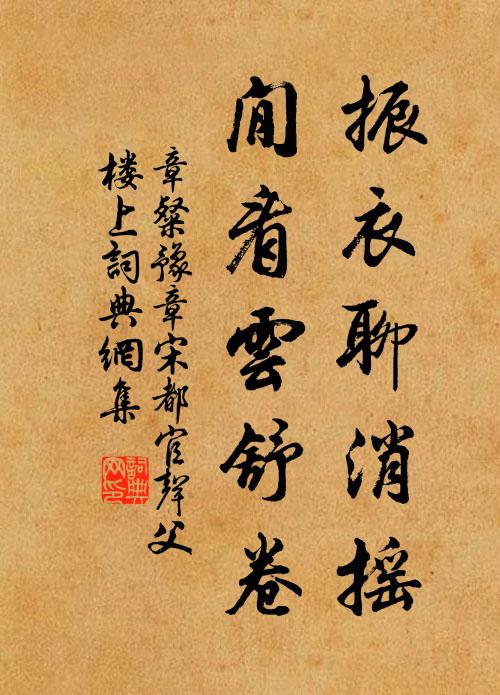 振衣聊消摇
閒看雲舒卷
章粲豫章宋都官聲父
楼上詞典網集
詞典网印